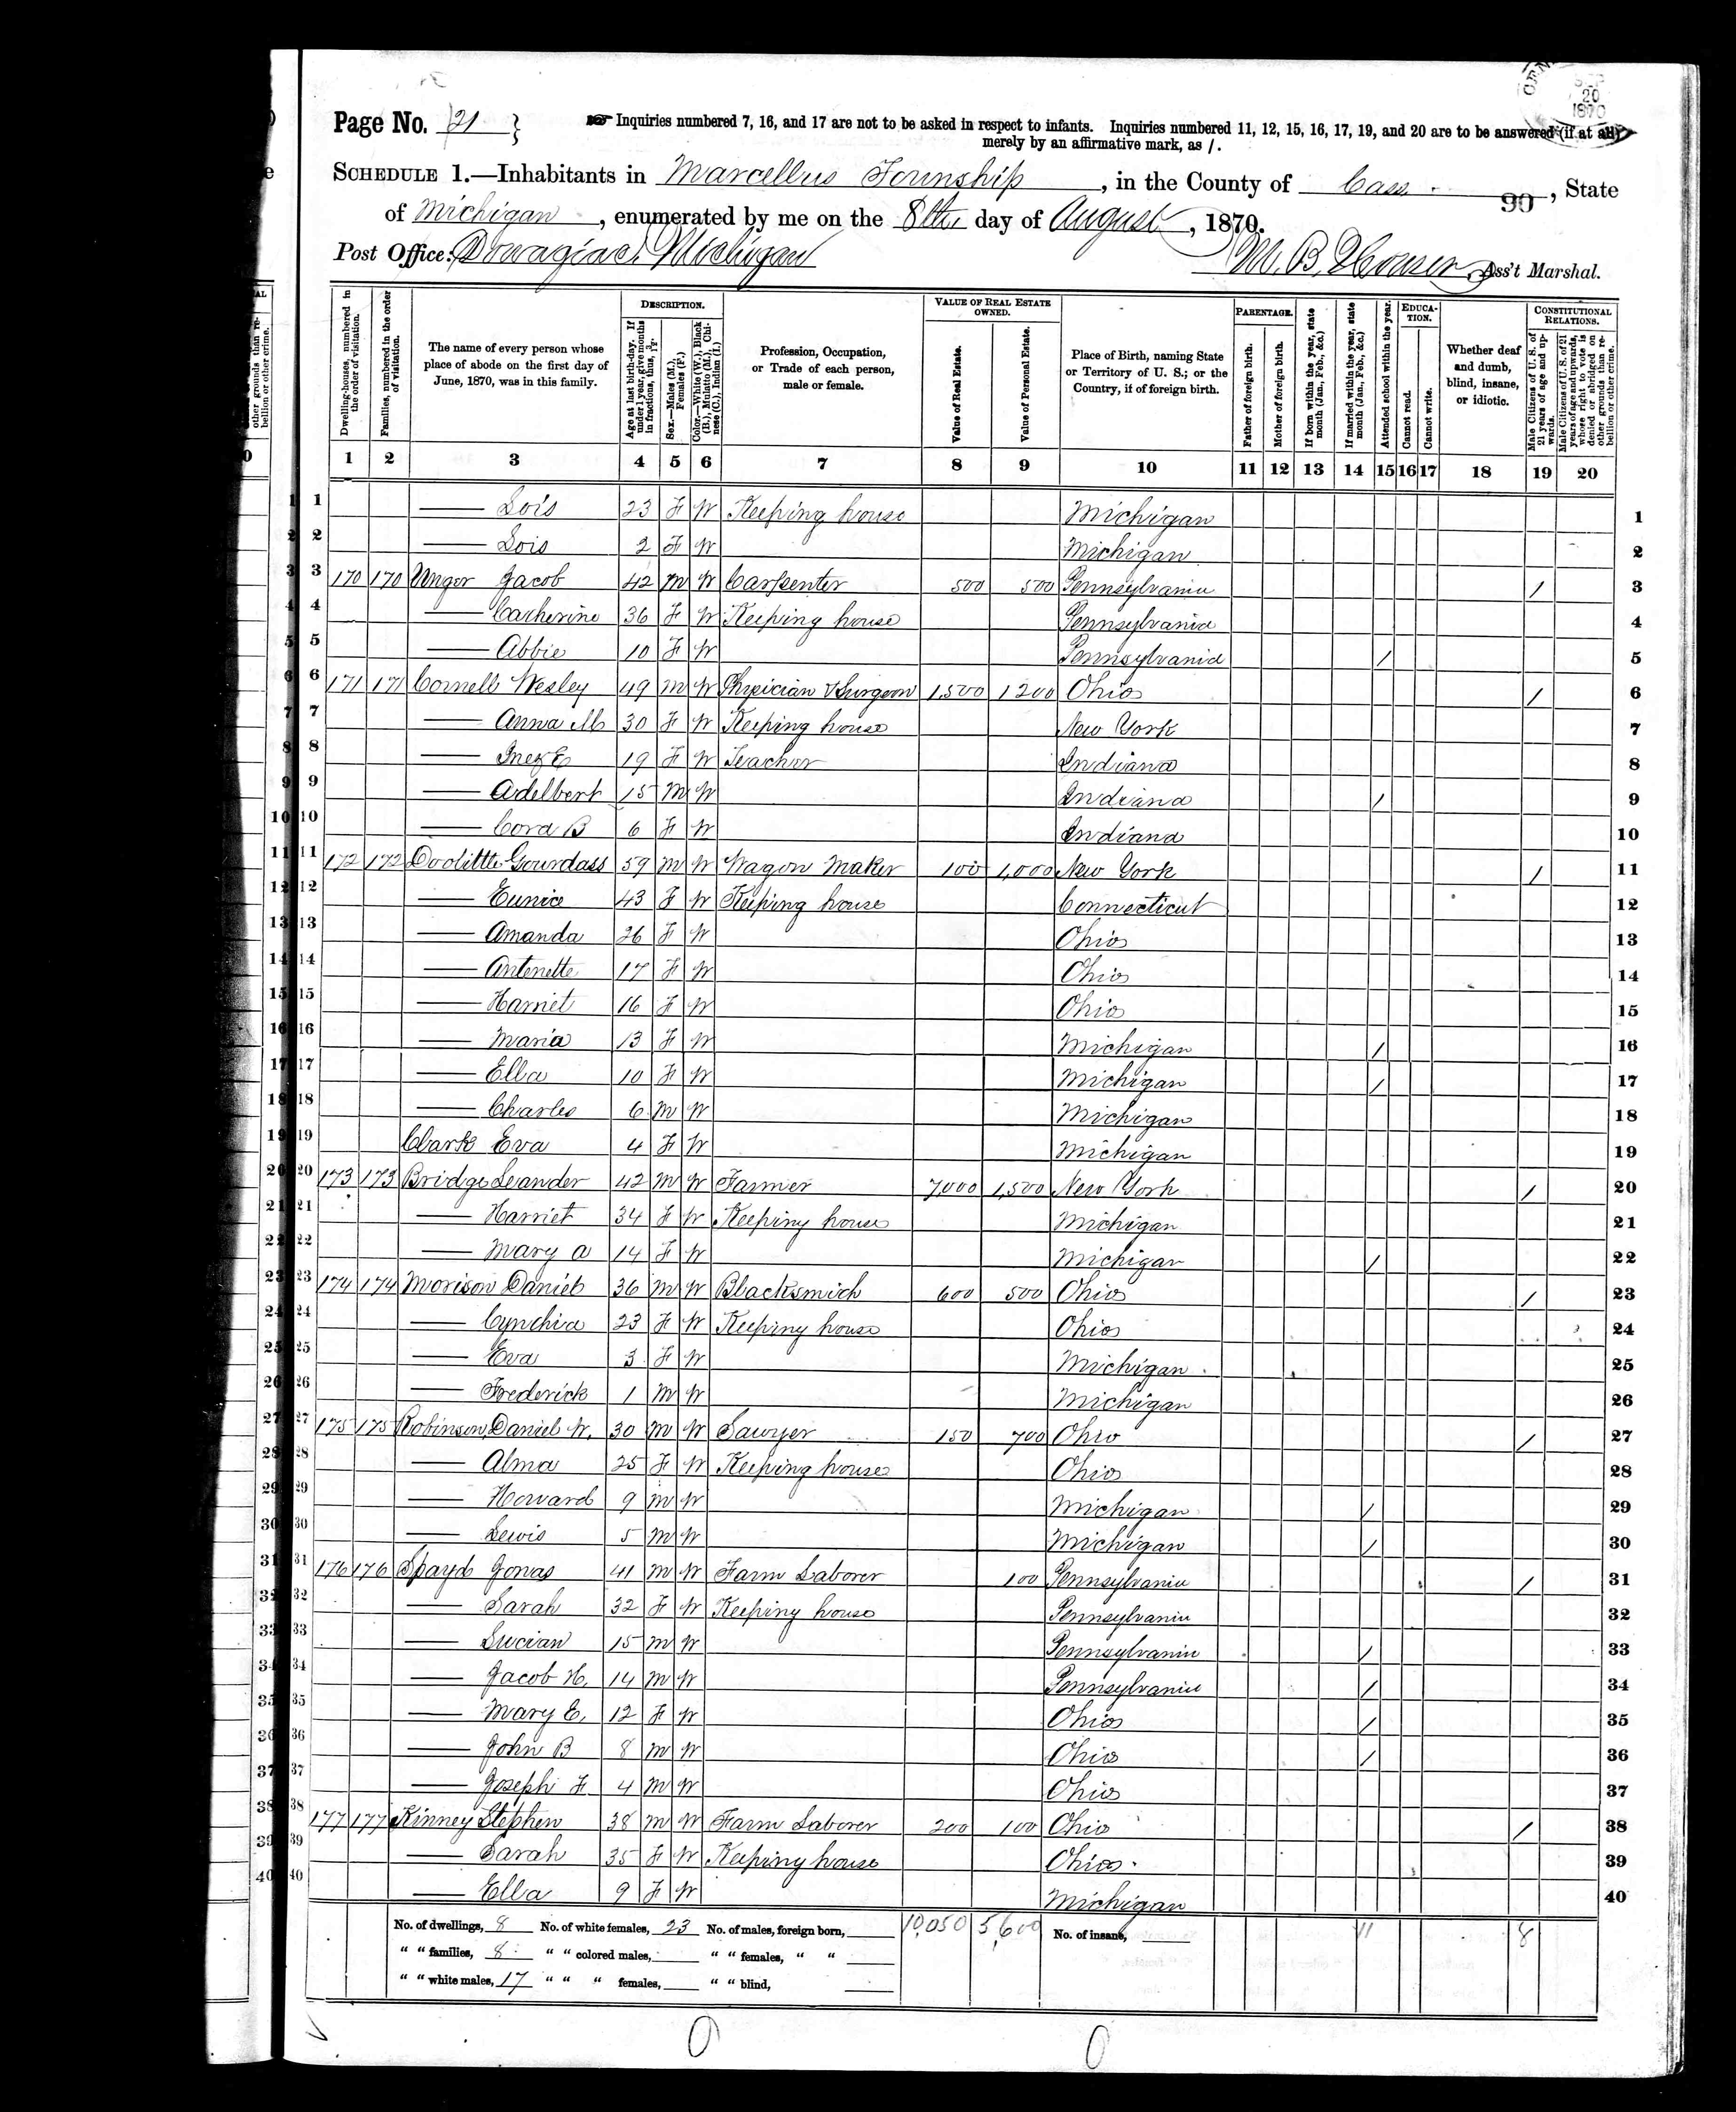 CEN
SEP
20
1870
Page No. 21 } Inquiries numbered 7, 16, and 17 are not to be asked in respect to infants. Inquiries numbered 11, 12, 15, 16, 17, 19, and 20 are to be answered (if at all)
merely by an affirmative mark, as /.
SCHEDULE 1.—Inhabitants in Marcellus Township, in the County of Cass, State
90
of Michigan, enumerated by me on the 8th day of August, 1870.
Post Office: Dowagiac, Michigan M. B. Houser, Ass't Marshal.
Dwelling-houses, numbered in the order of visitation.
Families, numbered in the order of visitation.
The name of every person whose place of abode on the first day of June, 1870, was in this family.
DESCRIPTION.
Age at last birth-day. If under 1 year, give months in fractions, thus, 3/12.
Sex.—Males (M.), Females (F.)
Color.—White (W.), Black (B.), Mulatto (M.), Chinese (C.), Indian (I.)
Profession, Occupation, or Trade of each person, male or female.
VALUE OF REAL ESTATE OWNED.
Value of Real Estate.
Value of Personal Estate.
Place of Birth, naming State or Territory of U. S.; or the Country, if of foreign birth.
PARENTAGE.
Father of foreign birth.
Mother of foreign birth.
If born within the year, state month (Jan., Feb., &c.)
If married within the year, state month (Jan., Feb., &c.)
Attended school within the year.
EDUCATION.
Cannot read.
Cannot write.
Whether deaf and dumb, blind, insane, or idiotic.
CONSTITUTIONAL RELATIONS.
Male Citizens of U. S. of 21 years of age and upwards.
Male Citizens of U. S. of 21 years of age and upwards, whose right to vote is denied or abridged on other grounds than rebellion or other crime.
1 2 3 4 5 6 7 8 9 10 11 12 13 14 15 16 17 18 19 20
1 —— Lois 23 F W Keeping house Michigan 1
2 —— Lois 2 F W Michigan 2
3 170 170 Unger Jacob 42 M W Carpenter 500 500 Pennsylvania / 3
4 —— Catherine 36 F W Keeping house Pennsylvania 4
5 —— Abbie 10 F W Pennsylvania / 5
6 171 171 Cornell Wesley 49 M W Physician & Surgeon 1,500 1200 Ohio / 6
7 —— Anna M 30 F W Keeping house New York 7
8 —— Inez E 19 F W Teacher Indiana 8
9 —— Adelbert 15 M W Indiana / 9
10 —— Cora B 6 F W Indiana 10
11 172 172 Doolittle Gourdass 59 M W Wagon Maker 100 1,000 New York / 11
12 —— Eunice 43 F W Keeping house Connecticut 12
13 —— Amanda 26 F W Ohio 13
14 —— Antenette 17 F W Ohio 14
15 —— Harriet 16 F W Ohio 15
16 —— Maria 13 F W Michigan / 16
17 —— Ella 10 F W Michigan / 17
18 —— Charles 6 M W Michigan 18
19 Clark Eva 4 F W Michigan 19
20 173 173 Bridge Leander 42 M W Farmer 7,000 1,500 New York / 20
21 —— Harriet 34 F W Keeping house Michigan 21
22 —— Mary A 14 F W Michigan / 22
23 174 174 Morison Daniel 36 M W Blacksmith 600 500 Ohio / 23
24 —— Cynthia 23 F W Keeping house Ohio 24
25 —— Eva 3 F W Michigan 25
26 —— Frederick 1 M W Michigan 26
27 175 175 Robinson, Daniel W. 30 M W Sawyer 150 700 Ohio / 27
28 —— Alma 25 F W Keeping house Ohio 28
29 —— Howard 9 M W Michigan / 29
30 —— Lewis 5 M W Michigan / 30
31 176 176 Spayd Jonas 41 M W Farm Laborer 100 Pennsylvania / 31
32 —— Sarah 32 F W Keeping house Pennsylvania 32
33 —— Lucian 15 M W Pennsylvania / 33
34 —— Jacob H. 14 M W Pennsylvania / 34
35 —— Mary E. 12 F W Ohio / 35
36 —— John B 8 M W Ohio / 36
37 —— Joseph F. 4 M W Ohio 37
38 177 177 Kinney Stephen 38 M W Farm Laborer 200 100 Ohio / 38
39 —— Sarah 35 F W Keeping house Ohio 39
40 —— Ella 9 F W Michigan 40
No. of dwellings, 8 No. of white females, 23 No. of males, foreign born, 10,050 5,600 No. of insane, 11 8
" " families, 8 " " colored males, " " females, " "
" " white males, 17 " " " females, " " blind,